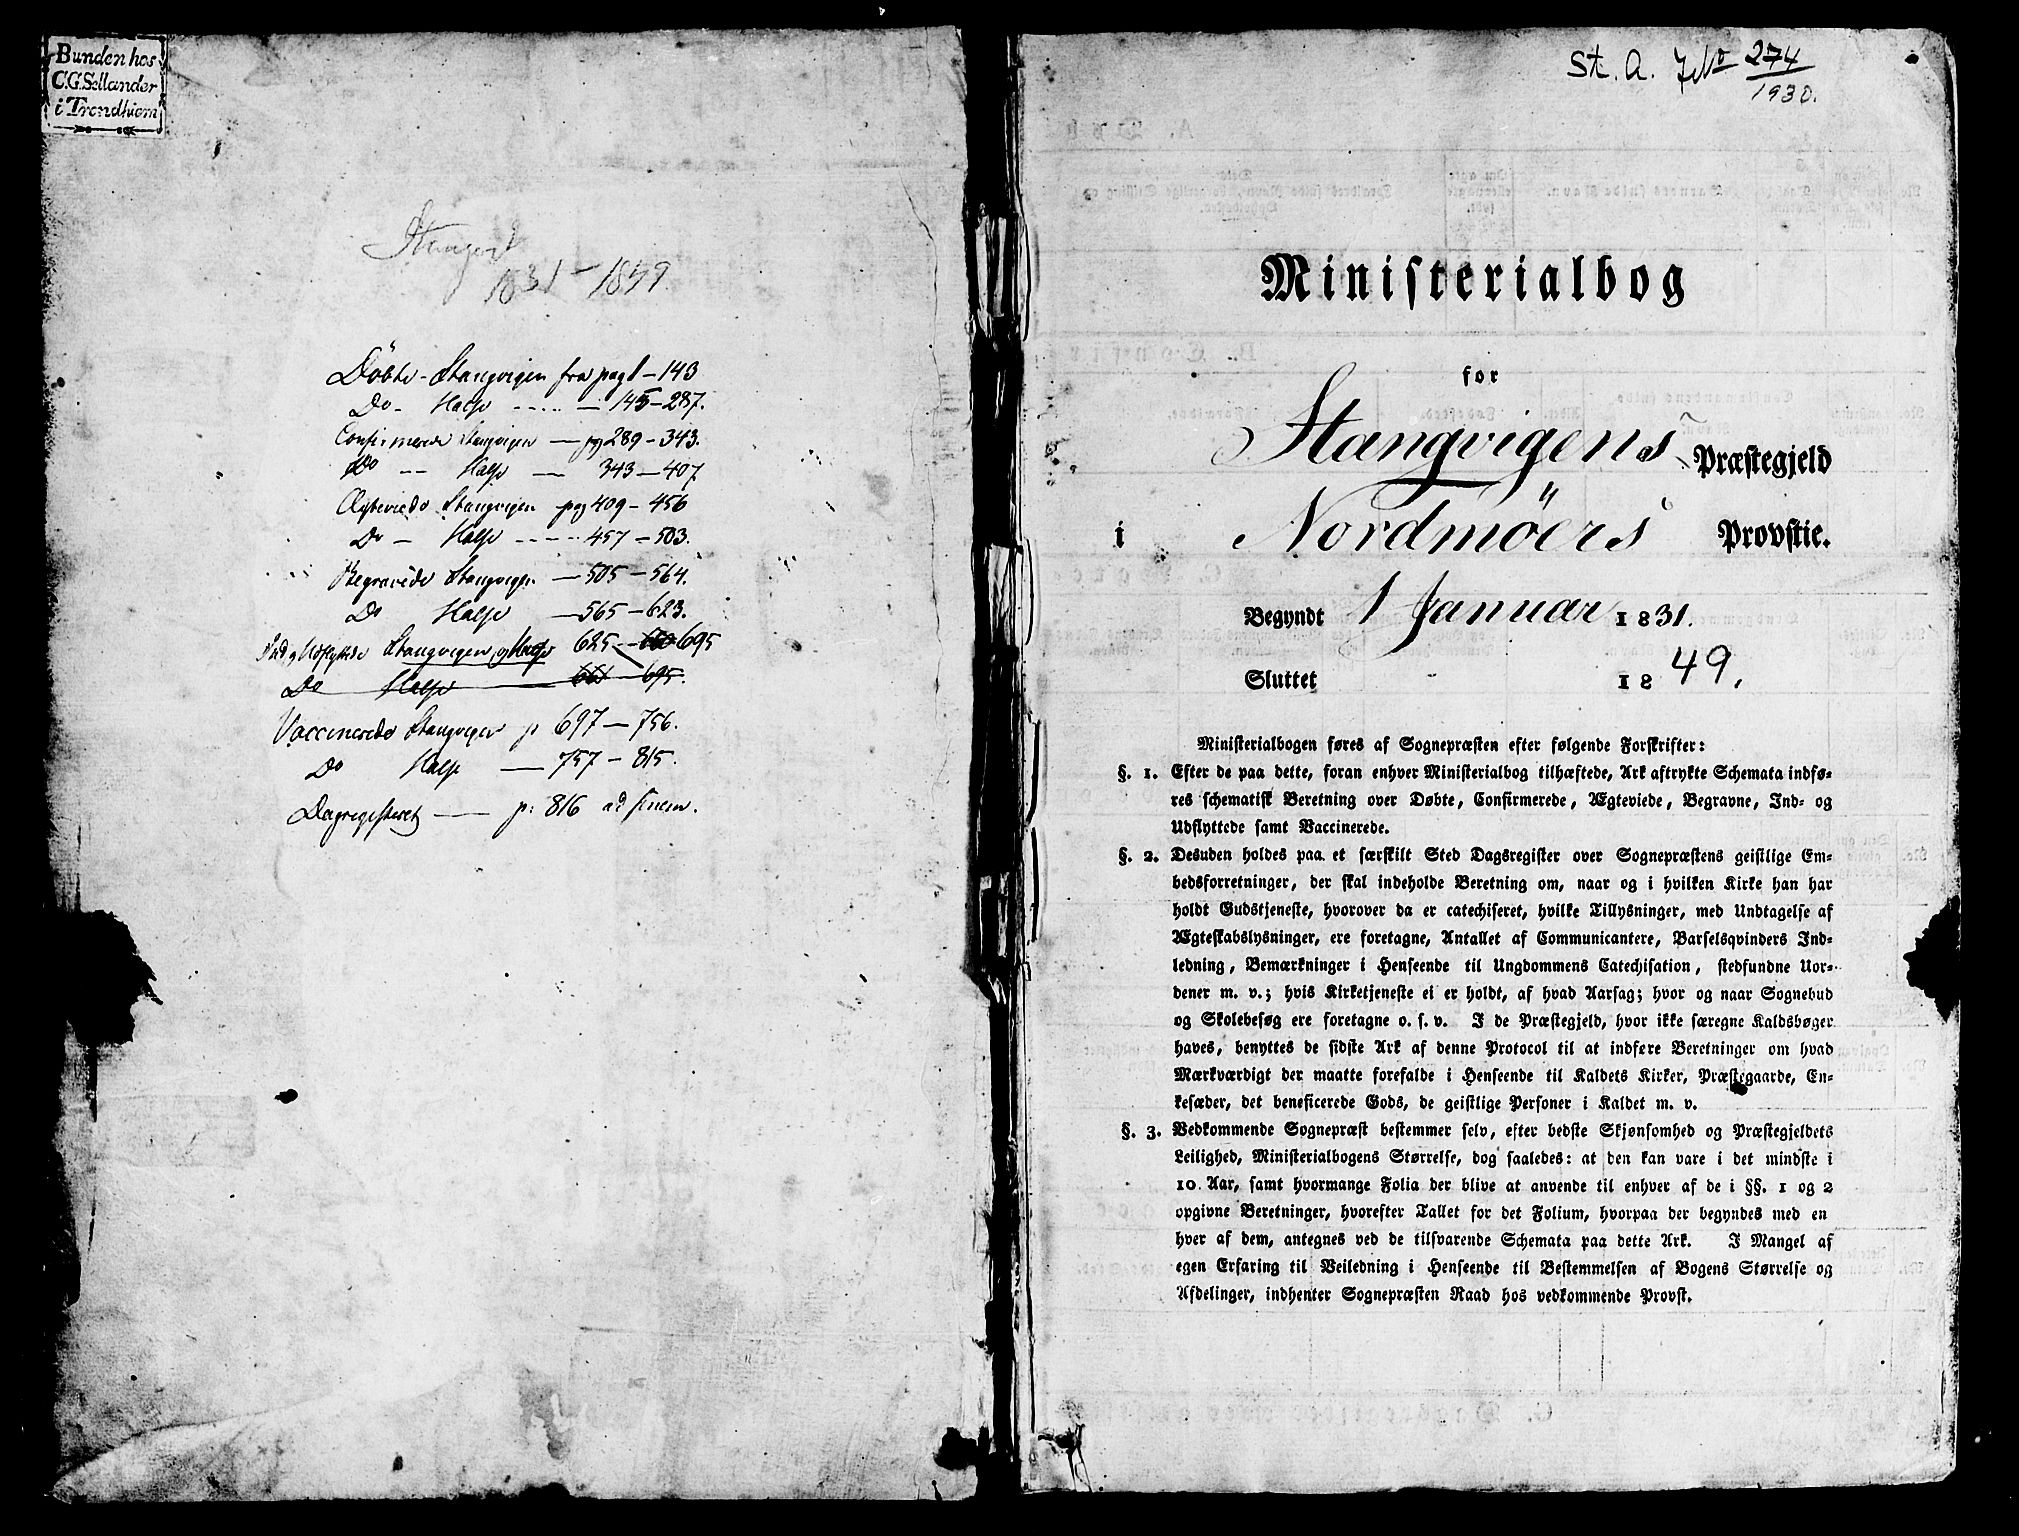 Bunden hos
C.G.Sellander
i Trondhiem
1831 - 1849
Döbte - Stangvigen fra pag 1 - 143
Do - Halse ---- - 145 - 287.
Confirmerede Stangvigen - pg 289 - 343.
Do -- Halse - 343 - 407
Ægteviede Stangvigen pag 409 - 456
Do - Halse ---- 457 - 503.
Begravede Stangvigen - 505 - 564.
Do Halse - 565 - 623.
Ind og Udflyttede Stangvigen og Halse 625 - 695
Do Halse 661 - 695.
Vaccinerede Stangvigen p 697 - 756.
Do Halse - 757 - 815.
Dagregisteret - p: 816 ad finem.
St. A. 274
1930.
Ministerialbog
for
Stangvigens Præstegjeld
i Nordmöers Provstie.
Begyndt 1 Januar 1831.
Sluttet 1849.
Ministerialbogen føres af Sognepræsten efter følgende Forskrifter:
§. 1. Efter de paa dette, foran enhver Ministerialbog tilhæftede, Ark aftrykte Schemata indfø-
res schematisk Beretning over Døbte, Confirmerede, Ægteviede, Begravne, Ind- og
Udflyttede samt Vaccinerede.
§. 2. Desuden holdes paa et særskilt Sted Dagsregister over Sognepræstens geistlige Em-
bedsforretninger, der skal indeholde Beretning om, naar og i hvilken Kirke han har
holdt Gudstjeneste, hvorover da er catechiseret, hvilke Tillysninger, med Undtagelse af
Ægteskabslysninger, ere foretagne, Antallet af Communicantere, Barselsqvinders Ind-
ledning, Bemærkninger i Henseende til Ungdommens Catechisation, stedfundne Uor-
dener m. v.; hvis Kirketjeneste ei er holdt, af hvad Aarsag; hvor og naar Sognebud
og Skolebesøg ere foretagne o. s. v. I de Præstegjeld, hvor ikke særegne Kaldsbøger
haves, benyttes de sidste Ark af denne Protocol til at indføre Beretninger om hvad
Mærkværdigt der maatte forefalde i Henseende til Kaldets Kirker, Præstegaarde, En-
kesæder, det beneficerede Gods, de geistlige Personer i Kaldet m. v.
§. 3. Vedkommende Sognepræst bestemmer selv, efter bedste Skjønsomhed og Præstegjeldets
Leilighed, Ministerialbogens Størrelse, dog saaledes: at den kan vare i det mindste i
10 Aar, samt hvormange Folia der blive at anvende til enhver af de i §§. 1 og 2
opgivne Beretninger, hvorefter Tallet for det Folium, hvorpaa der begyndes med en
hver af dem, antegnes ved de tilsvarende Schemata paa dette Ark. I Mangel af
egen Erfaring til Veiledning i Henseende til Bestemmelsen af Bogens Størrelse og
Afdelinger, indhenter Sognepræsten Raad hos vedkommende Provst.